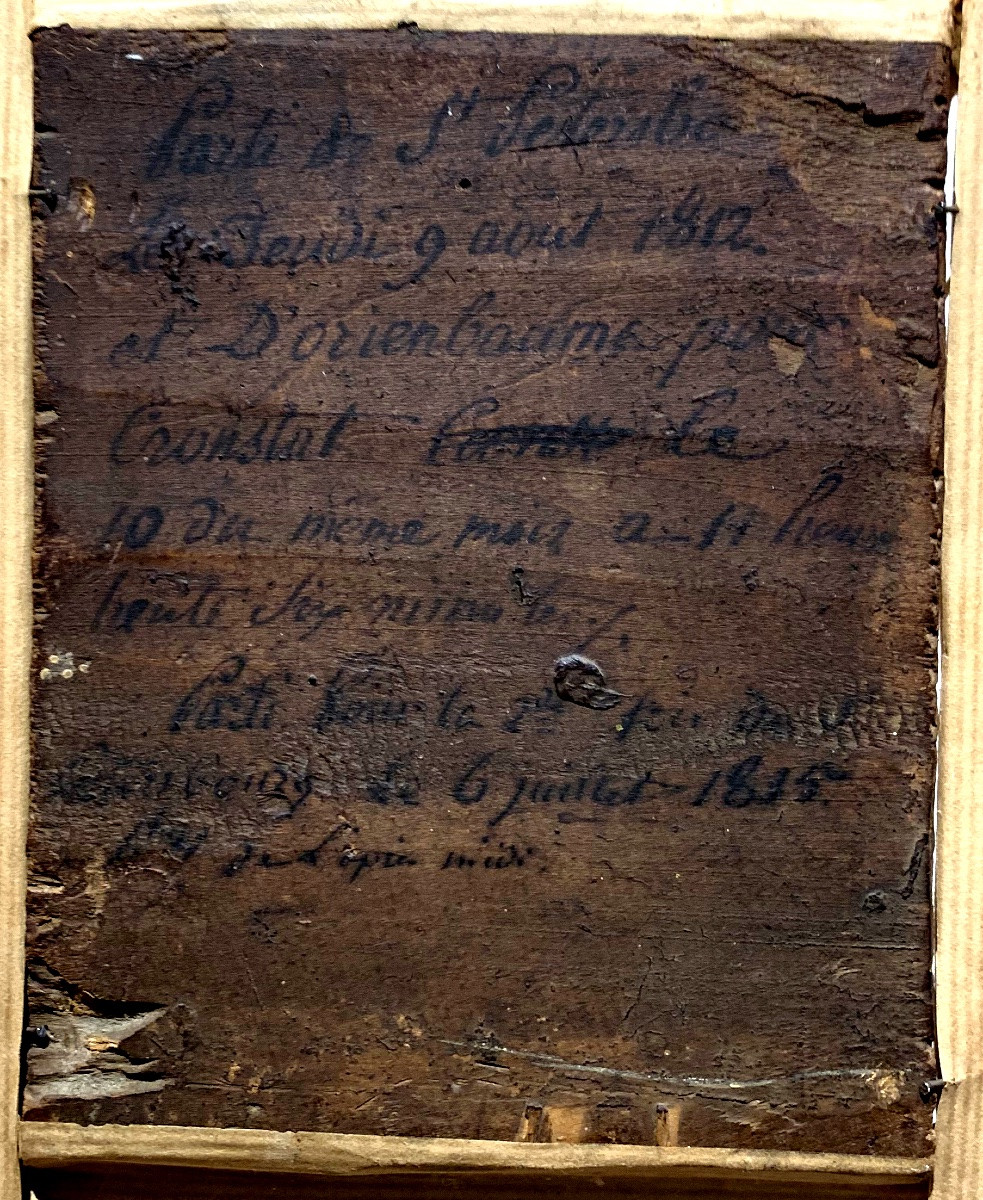 Parti de St Petersbg
le Jeudi 9 aout 1812.
et D'orienbaume pour
Cronstat Le
10 du méme mois a 11 heure
trente six minutes
Parti Pour la 2de fois de St
le 6 juillet 1815
de L'aprés midi.